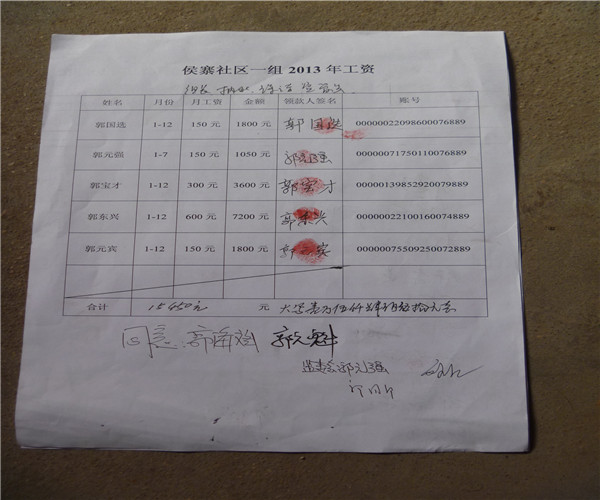 侯寨社区一组 2013 年工资
姓名 月份 月工资 金额 领款人签名 账号
郭国选 1-12 150 元 1800 元 郭国选 00000022098600076889
郭元强 1-7 150 元 1050 元 郭元强 00000071750110076889
郭宝才 1-12 300 元 3600 元 郭宝才 00000139852920079889
郭东兴 1-12 600 元 7200 元 郭东兴 00000022100160074889
郭元宾 1-12 150 元 1800 元 郭元宾 00000075509250072889
合计 15450元 元 大写 壹万伍仟肆佰
同意 郭 郭元魁
监委会郭元强